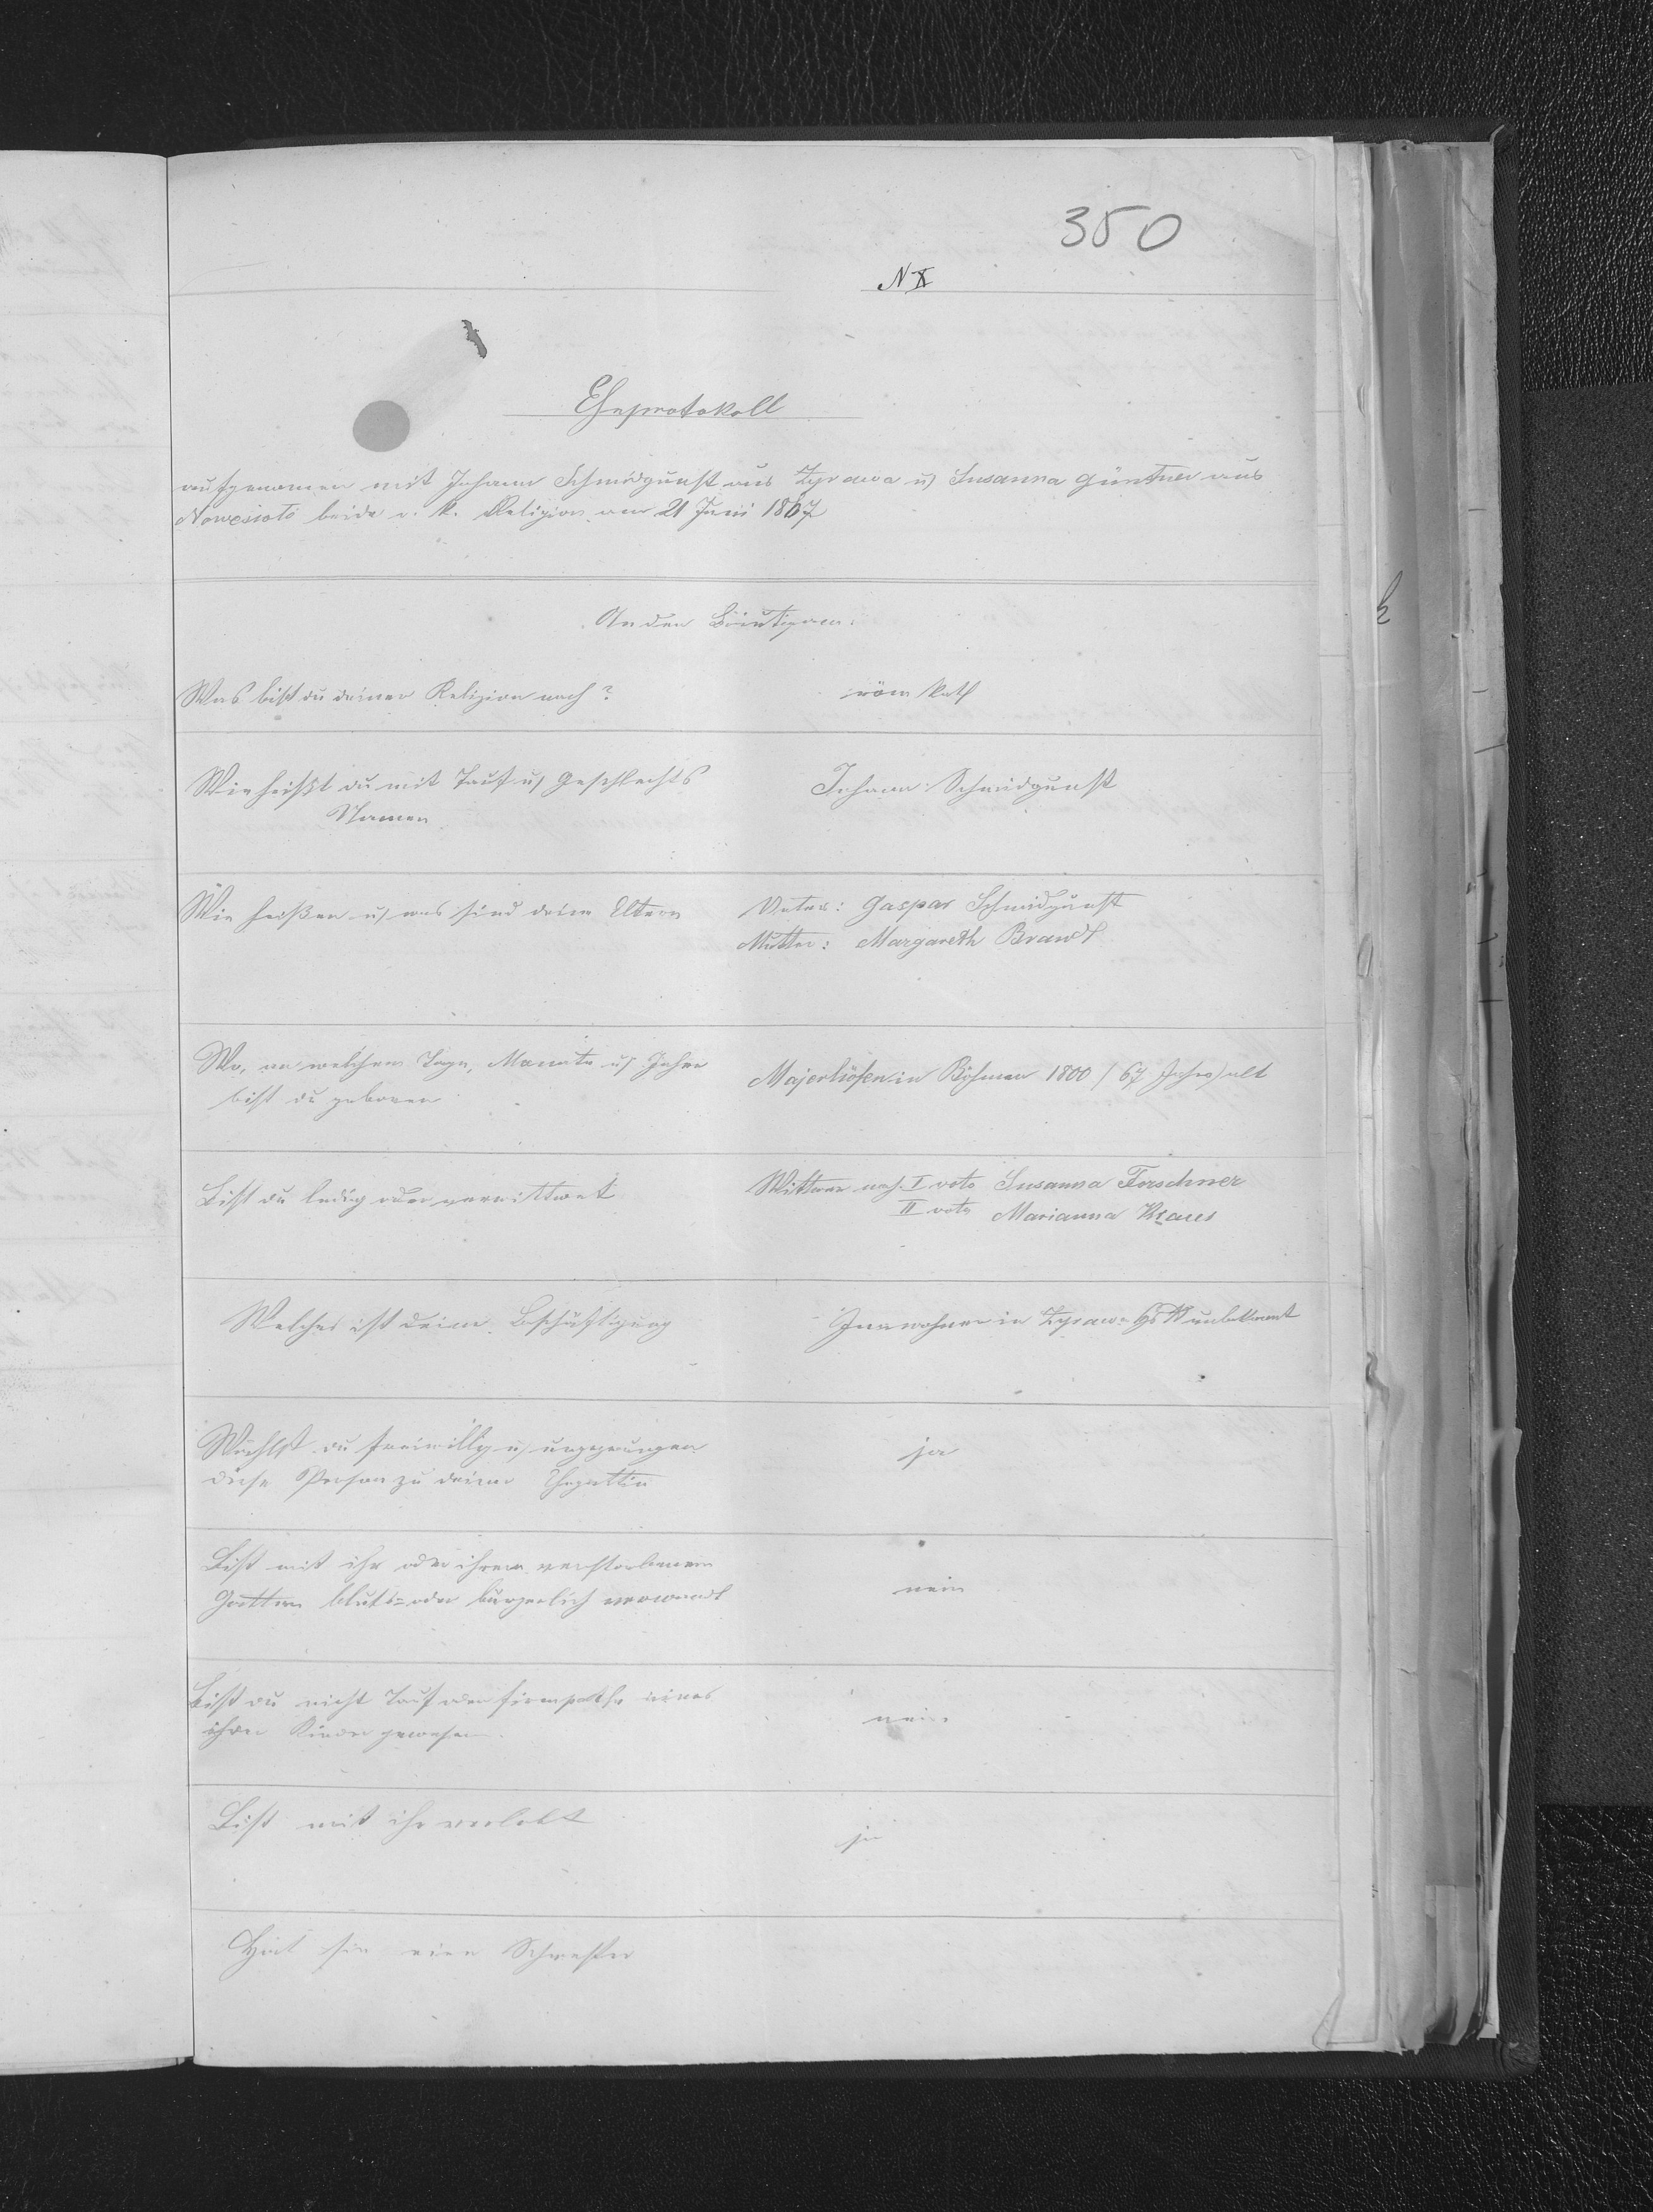 350
N X
Eheprotokoll
aufgenomen mit Johann Schmidgunst aus Zyrawa u) Susanna Güntner aus
Nowesioło beide r. k. Religion am 21 Juni 1867
An den Bräutigam:
Was bist du deiner Religion nach?
röm kath
Wie heißt du mit Tauf u) Geschlechts
Namen
Johann Schmidgunst
Wie heißen u) was sind deine Eltern
Vater: Gaspar Schmidgunst
Mutter: Margareth Brandt
Wo, an welchem Tage, Monate u) Jahre
bist du geboren
Majerhöfen in Böhmen 1800 / 67 Jahre) alt
Bist du ledig oder verwittwet
Wittwer nach I voto Susanna Forschner
II voto Marianna Kraus
Welches ist deine Beschäftigung
Innwohner in Zyrawa unbekannt
Wählst du freiwillig u) ungezwungen
diese Person zu deiner Ehegattin
ja
Bist mit ihr oder ihrem verstorbenem
Gatten bluts= oder bürgerlich verwandt
nein
Bist du nicht Tauf oder Firmpathe eines
ihrer Kinder gewesen.
nein
Bist mit ihr verlobt
ja
Hat sie eine Schwester